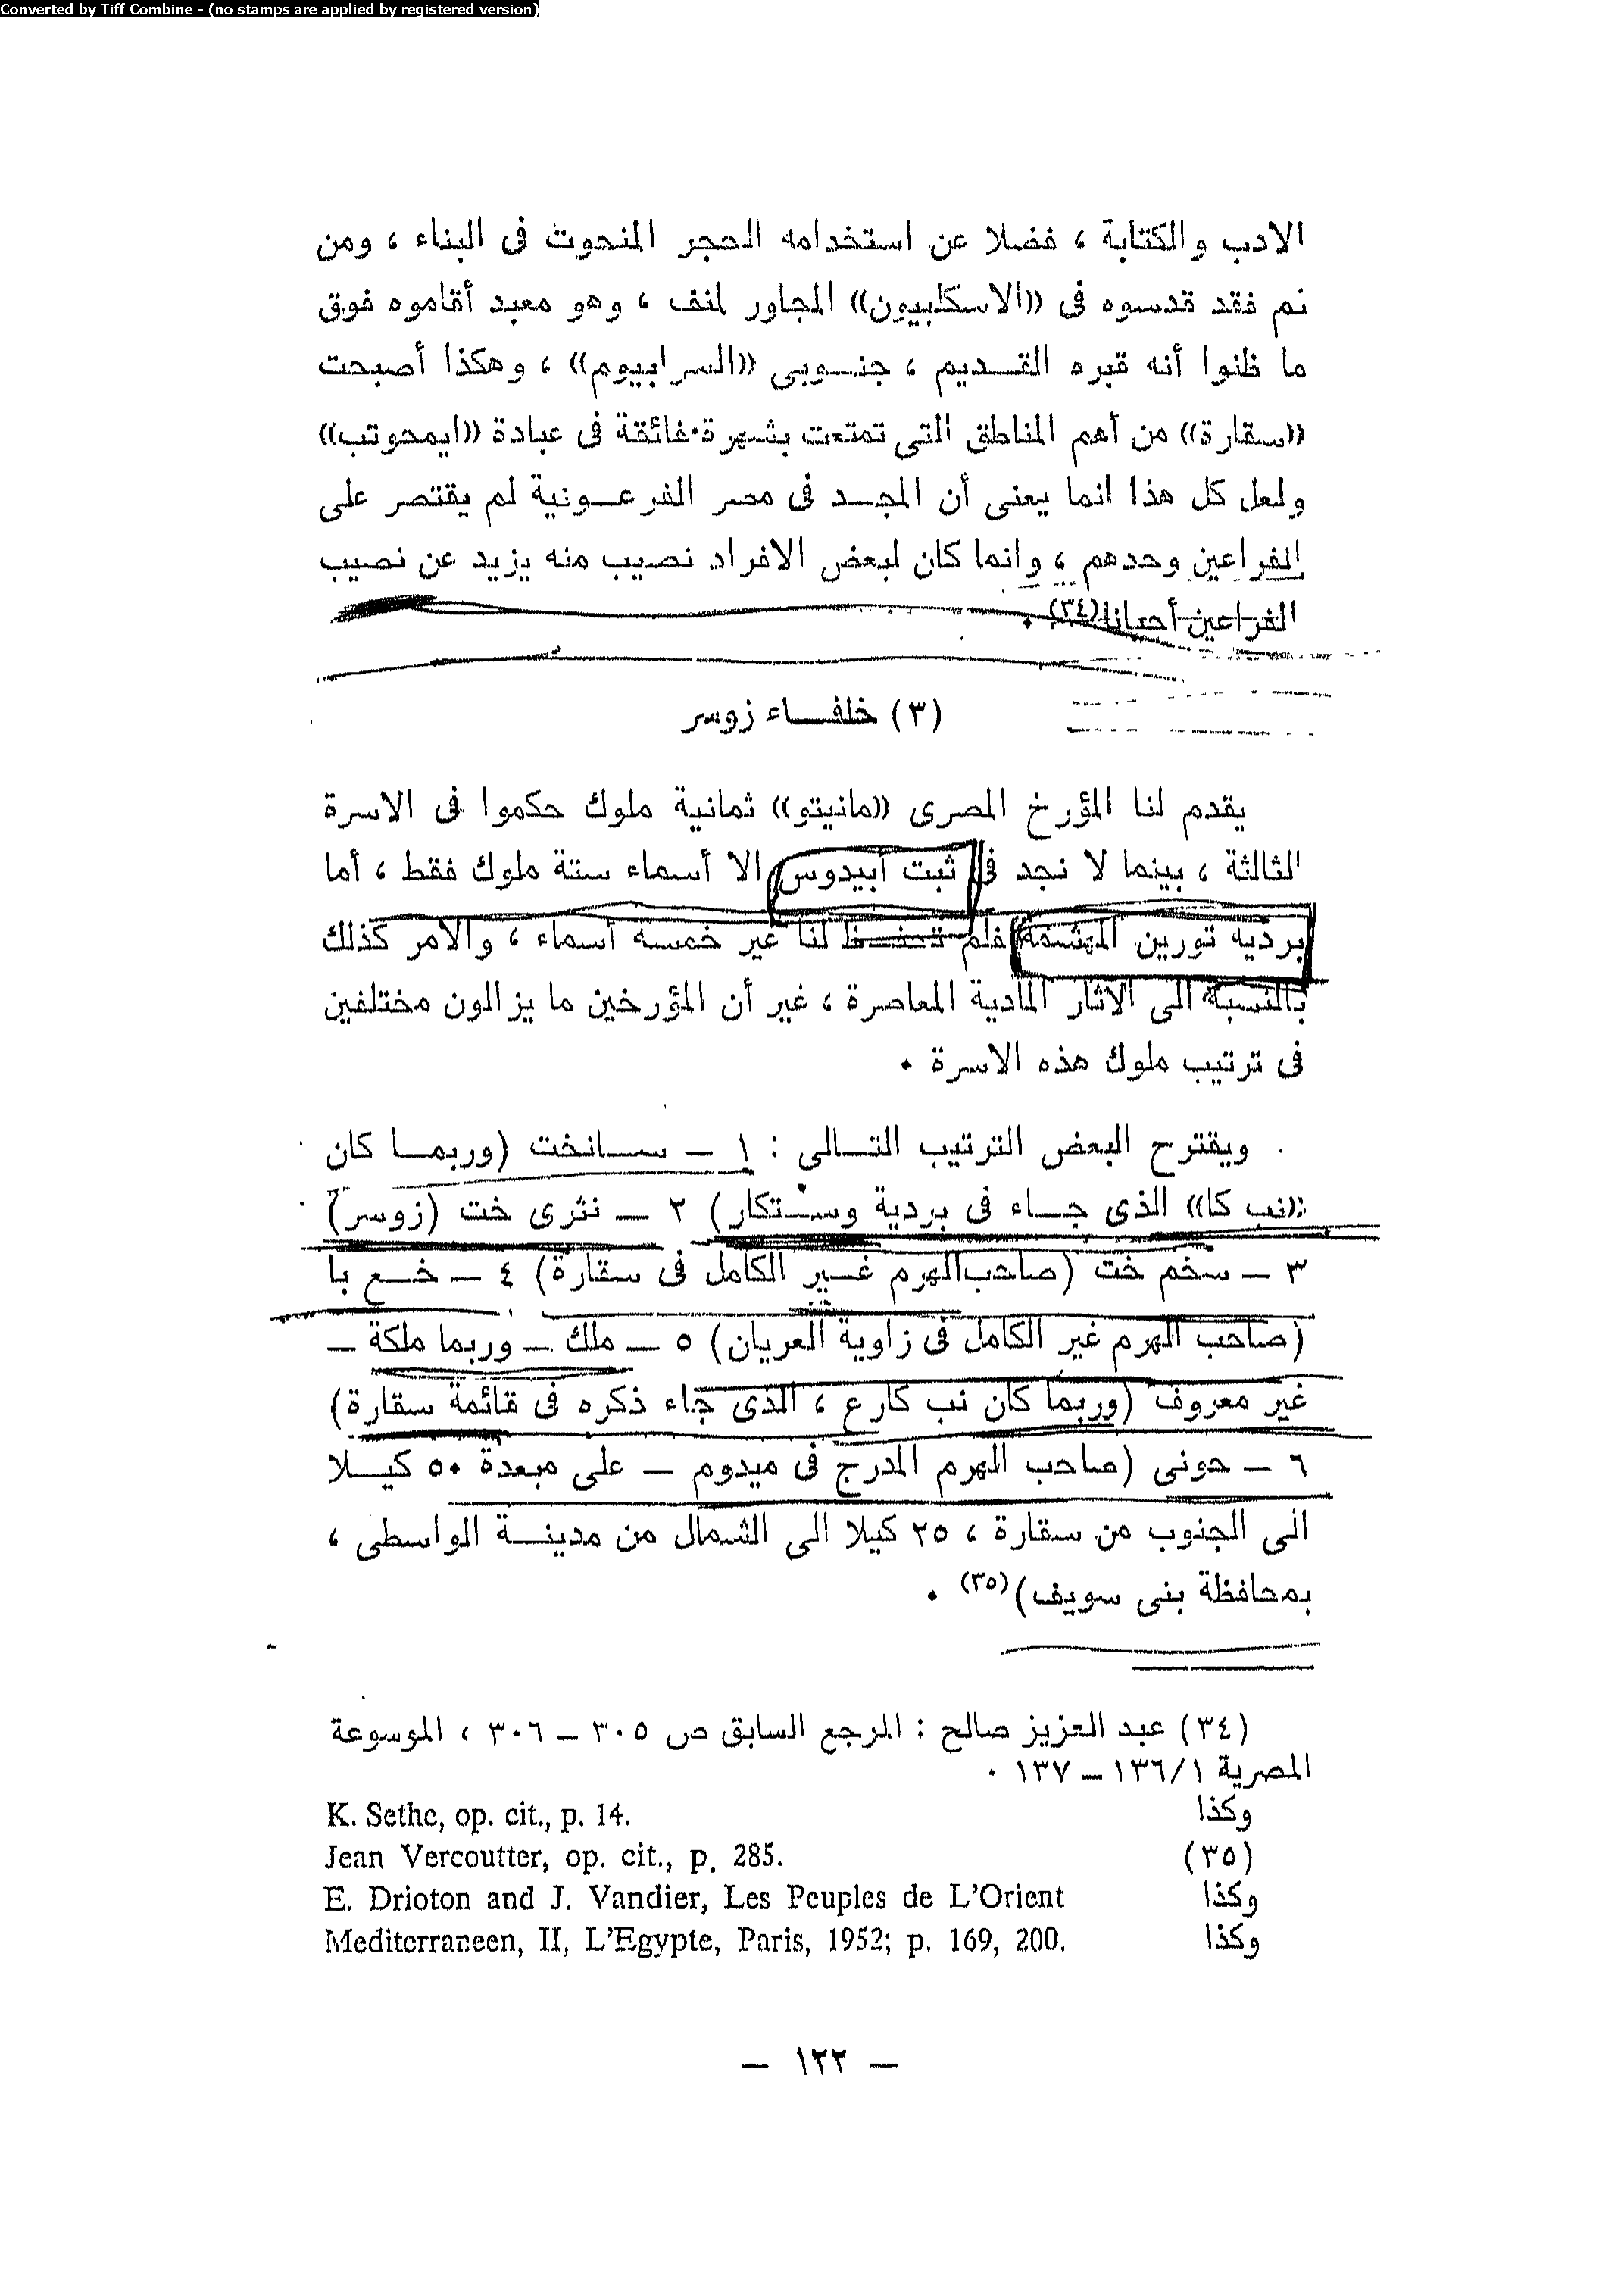 Converted by Tiff Combine - (no stamps are applied by registered version)
الادب والكتابة ، فضلا عن استخدامه الحجر المنحوت فى البناء ، ومن
ثم فقد قدسوه فى «الاسكلبيون» المجاور لمنف ، وهو معبد أقاموه فوق
ما ظنوا أنه قبره القديم ، جنوبى «السرابيوم» ، وهكذا أصبحت
«سقارة» من أهم المناطق التى تمتعت بشهرة فائقة فى عبادة «ايمحوتب»
ولعل كل هذا انما يعنى أن المجد فى مصر الفرعونية لم يقتصر على
الفراعين وحدهم ، وانما كان لبعض الافراد نصيب منه يزيد عن نصيب
الفراعين أحيانا(٣٤) .
(٣) خلفاء زوسر
يقدم لنا المؤرخ المصرى «مانيتو» ثمانية ملوك حكموا فى الاسرة
الثالثة ، بينما لا نجد فى ثبت أبيدوس الا أسماء ستة ملوك فقط ، أما
بردية تورين المهشمة فلم تحفظ لنا غير خمسة أسماء ، والامر كذلك
بالنسبة الى الآثار المادية المعاصرة ، غير أن المؤرخين ما يزالون مختلفين
فى ترتيب ملوك هذه الاسرة .
ويقترح البعض الترتيب التالى : ١ – سانخت (وربما كان
«نب كا» الذى جاء فى بردية وستكار) ٢ – نثرى خت (زوسر)
٣ – سخم خت (صاحب الهرم غير الكامل فى سقارة) ٤ – خع با
(صاحب الهرم غير الكامل فى زاوية العريان) ٥ – ملك – وربما ملكة –
غير معروف (وربما كان نب كارع ، الذى جاء ذكره فى قائمة سقارة)
٦ – حونى (صاحب الهرم المدرج فى ميدوم – على مبعدة ٥٠ كيلا
الى الجنوب من سقارة ، ٢٥ كيلا الى الشمال من مدينة الواسطى ،
بمحافظة بنى سويف)(٣٥) .
(٣٤) عبد العزيز صالح : المرجع السابق ص ٣٠٥ – ٣٠٦ ، الموسوعة
المصرية ١٣٦/١ – ١٣٧ .
وكذا K. Sethe, op. cit., p. 14.
(٣٥) Jean Vercoutter, op. cit., p. 285.
وكذا E. Drioton and J. Vandier, Les Peuples de L'Orient
وكذا Mediterraneen, II, L'Egypte, Paris, 1952; p. 169, 200.
– ١٢٢ –